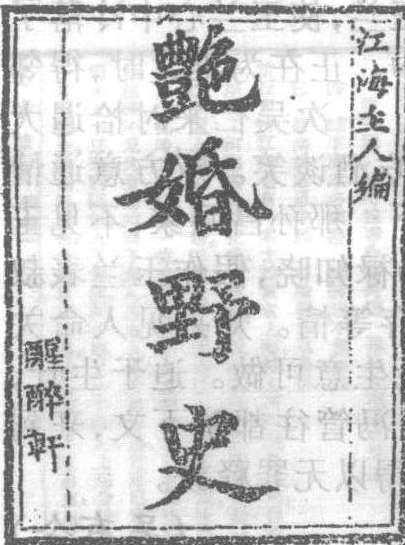 江海主人编
艷婚野史
醒醉軒